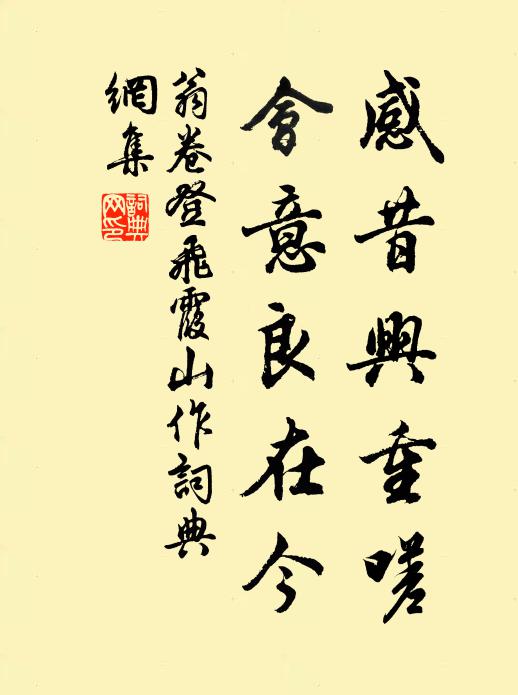 感昔興重嗟
會意良在今
翁卷登飛霞山作詞典
網集
詞典
网印